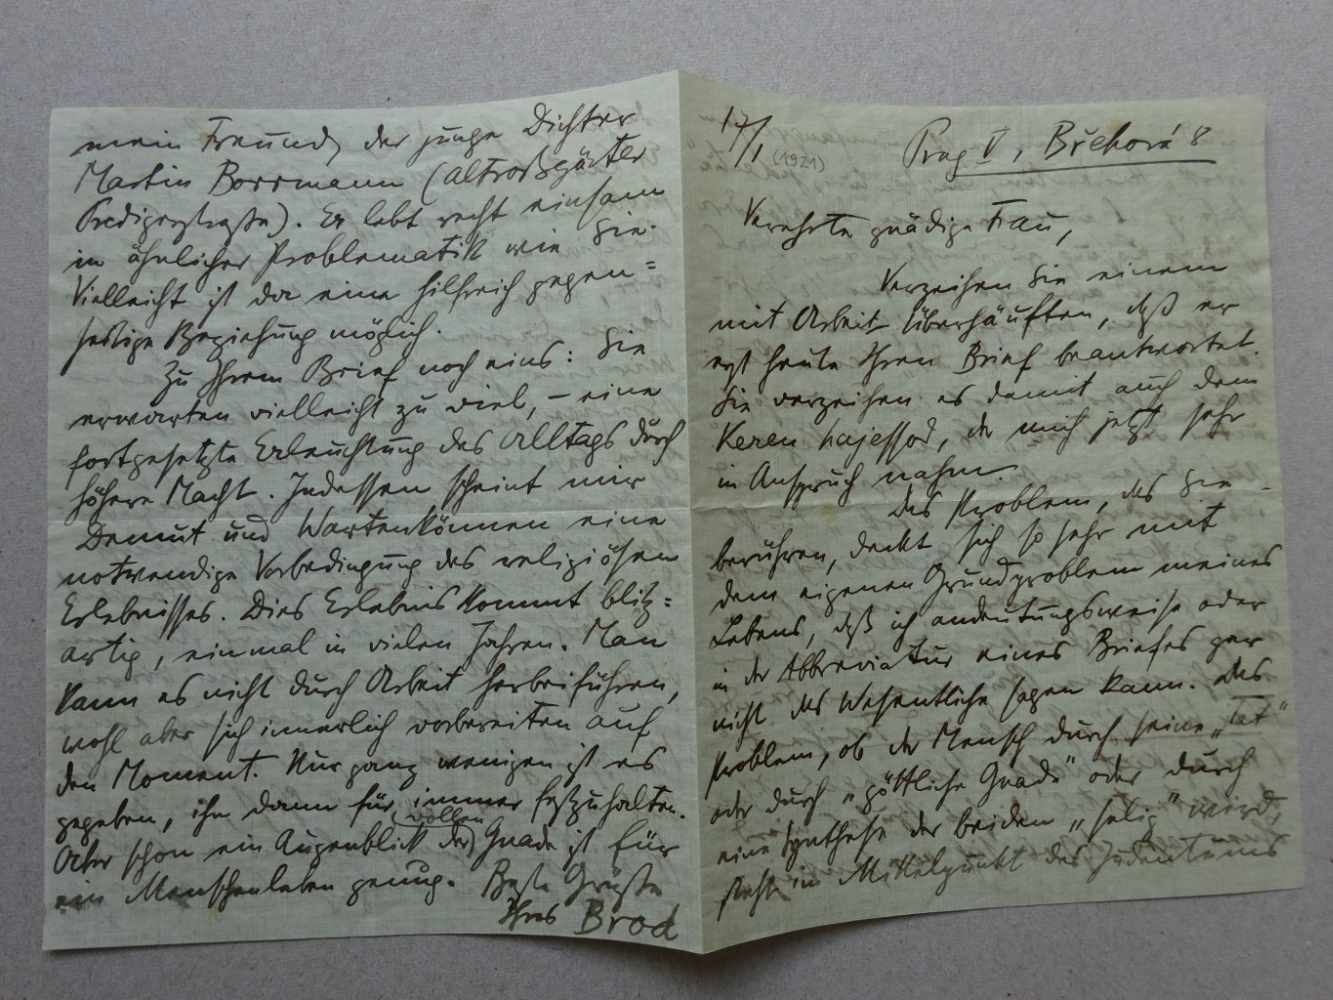 17/1 (1921)
Prag V, Břehová 8
Verehrte gnädige Frau,
Verzeihen Sie einem
mit Arbeit überhäuften, daß er
erst heute Ihren Brief beantwortet.
Sie verzeihen es damit auch dem
Keren hajessod, der mich jetzt sehr
in Anspruch nahm.
Das Problem, das Sie
berühren, deckt sich so sehr mit
dem eigenen Grundproblem meines
Lebens, daß ich andeutungsweise oder
in der Abbreviatur eines Briefes gar
nicht das Wesentliche sagen kann. Das
Problem, ob der Mensch durch seine „Tat"
oder durch „göttliche Gnade" oder durch
eine Synthese der beiden „selig" wird,
steht im Mittelpunkt des Judentums
mein Freund, der junge Dichter
Martin Borrmann (Altroßgärter
Predigerstraße). Er lebt recht einsam
in ähnlicher Problematik wie Sie.
Vielleicht ist da eine hilfreich gegen=
seitige Beziehung möglich.
Zu Ihrem Brief noch eins: Sie
erwarten vielleicht zu viel, – eine
fortgesetzte Erleuchtung des Alltags durch
höhere Macht. Indessen scheint mir
Demut und Wartenkönnen eine
notwendige Vorbedingung des religiösen
Erlebnisses. Dies Erlebnis kommt blitz=
artig, einmal in vielen Jahren. Man
kann es nicht durch Arbeit herbeiführen,
wohl aber sich innerlich vorbereiten auf
den Moment. Nur ganz wenigen ist es
gegeben, ihn dann für immer festzuhalten.
Aber schon ein Augenblick der vollen Gnade ist für
ein Menschenleben genug. Beste Grüße
Ihres Brod